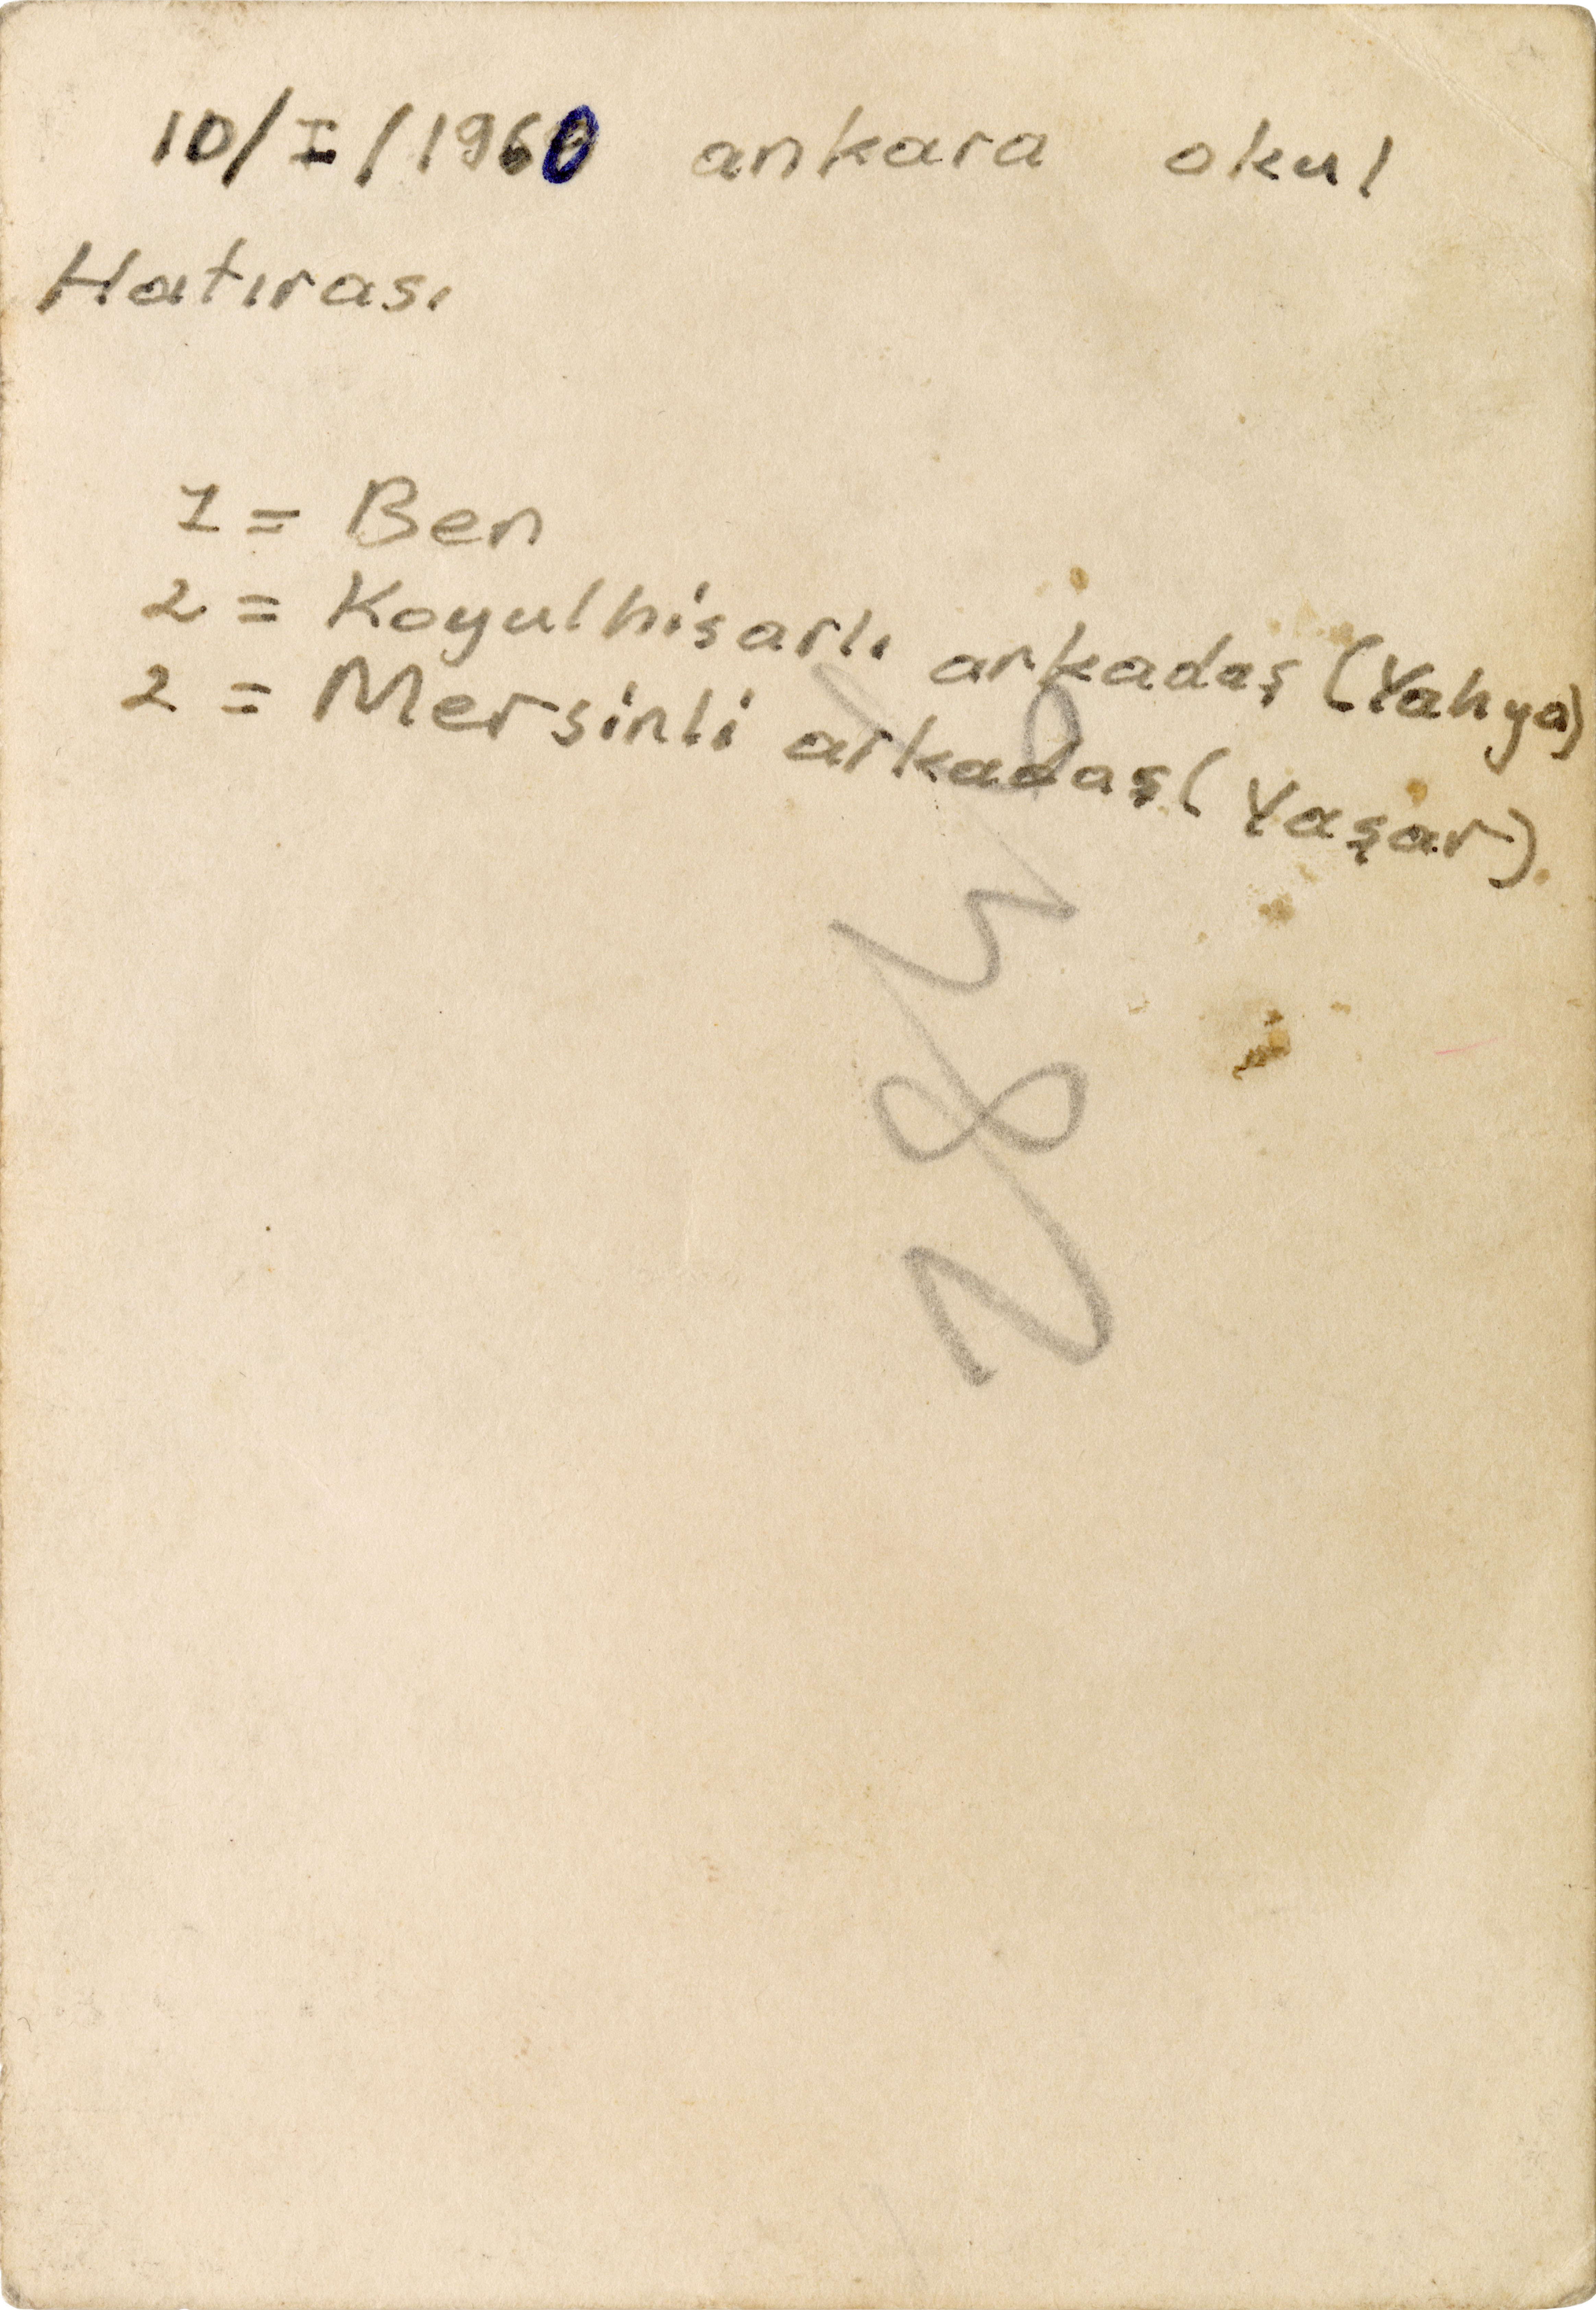 10/I/1960 ankara okul
Hatırası
1 = Ben
2 = Koyulhisarlı arkadaş (Yahya)
2 = Mersinli arkadaş (Yaşar)